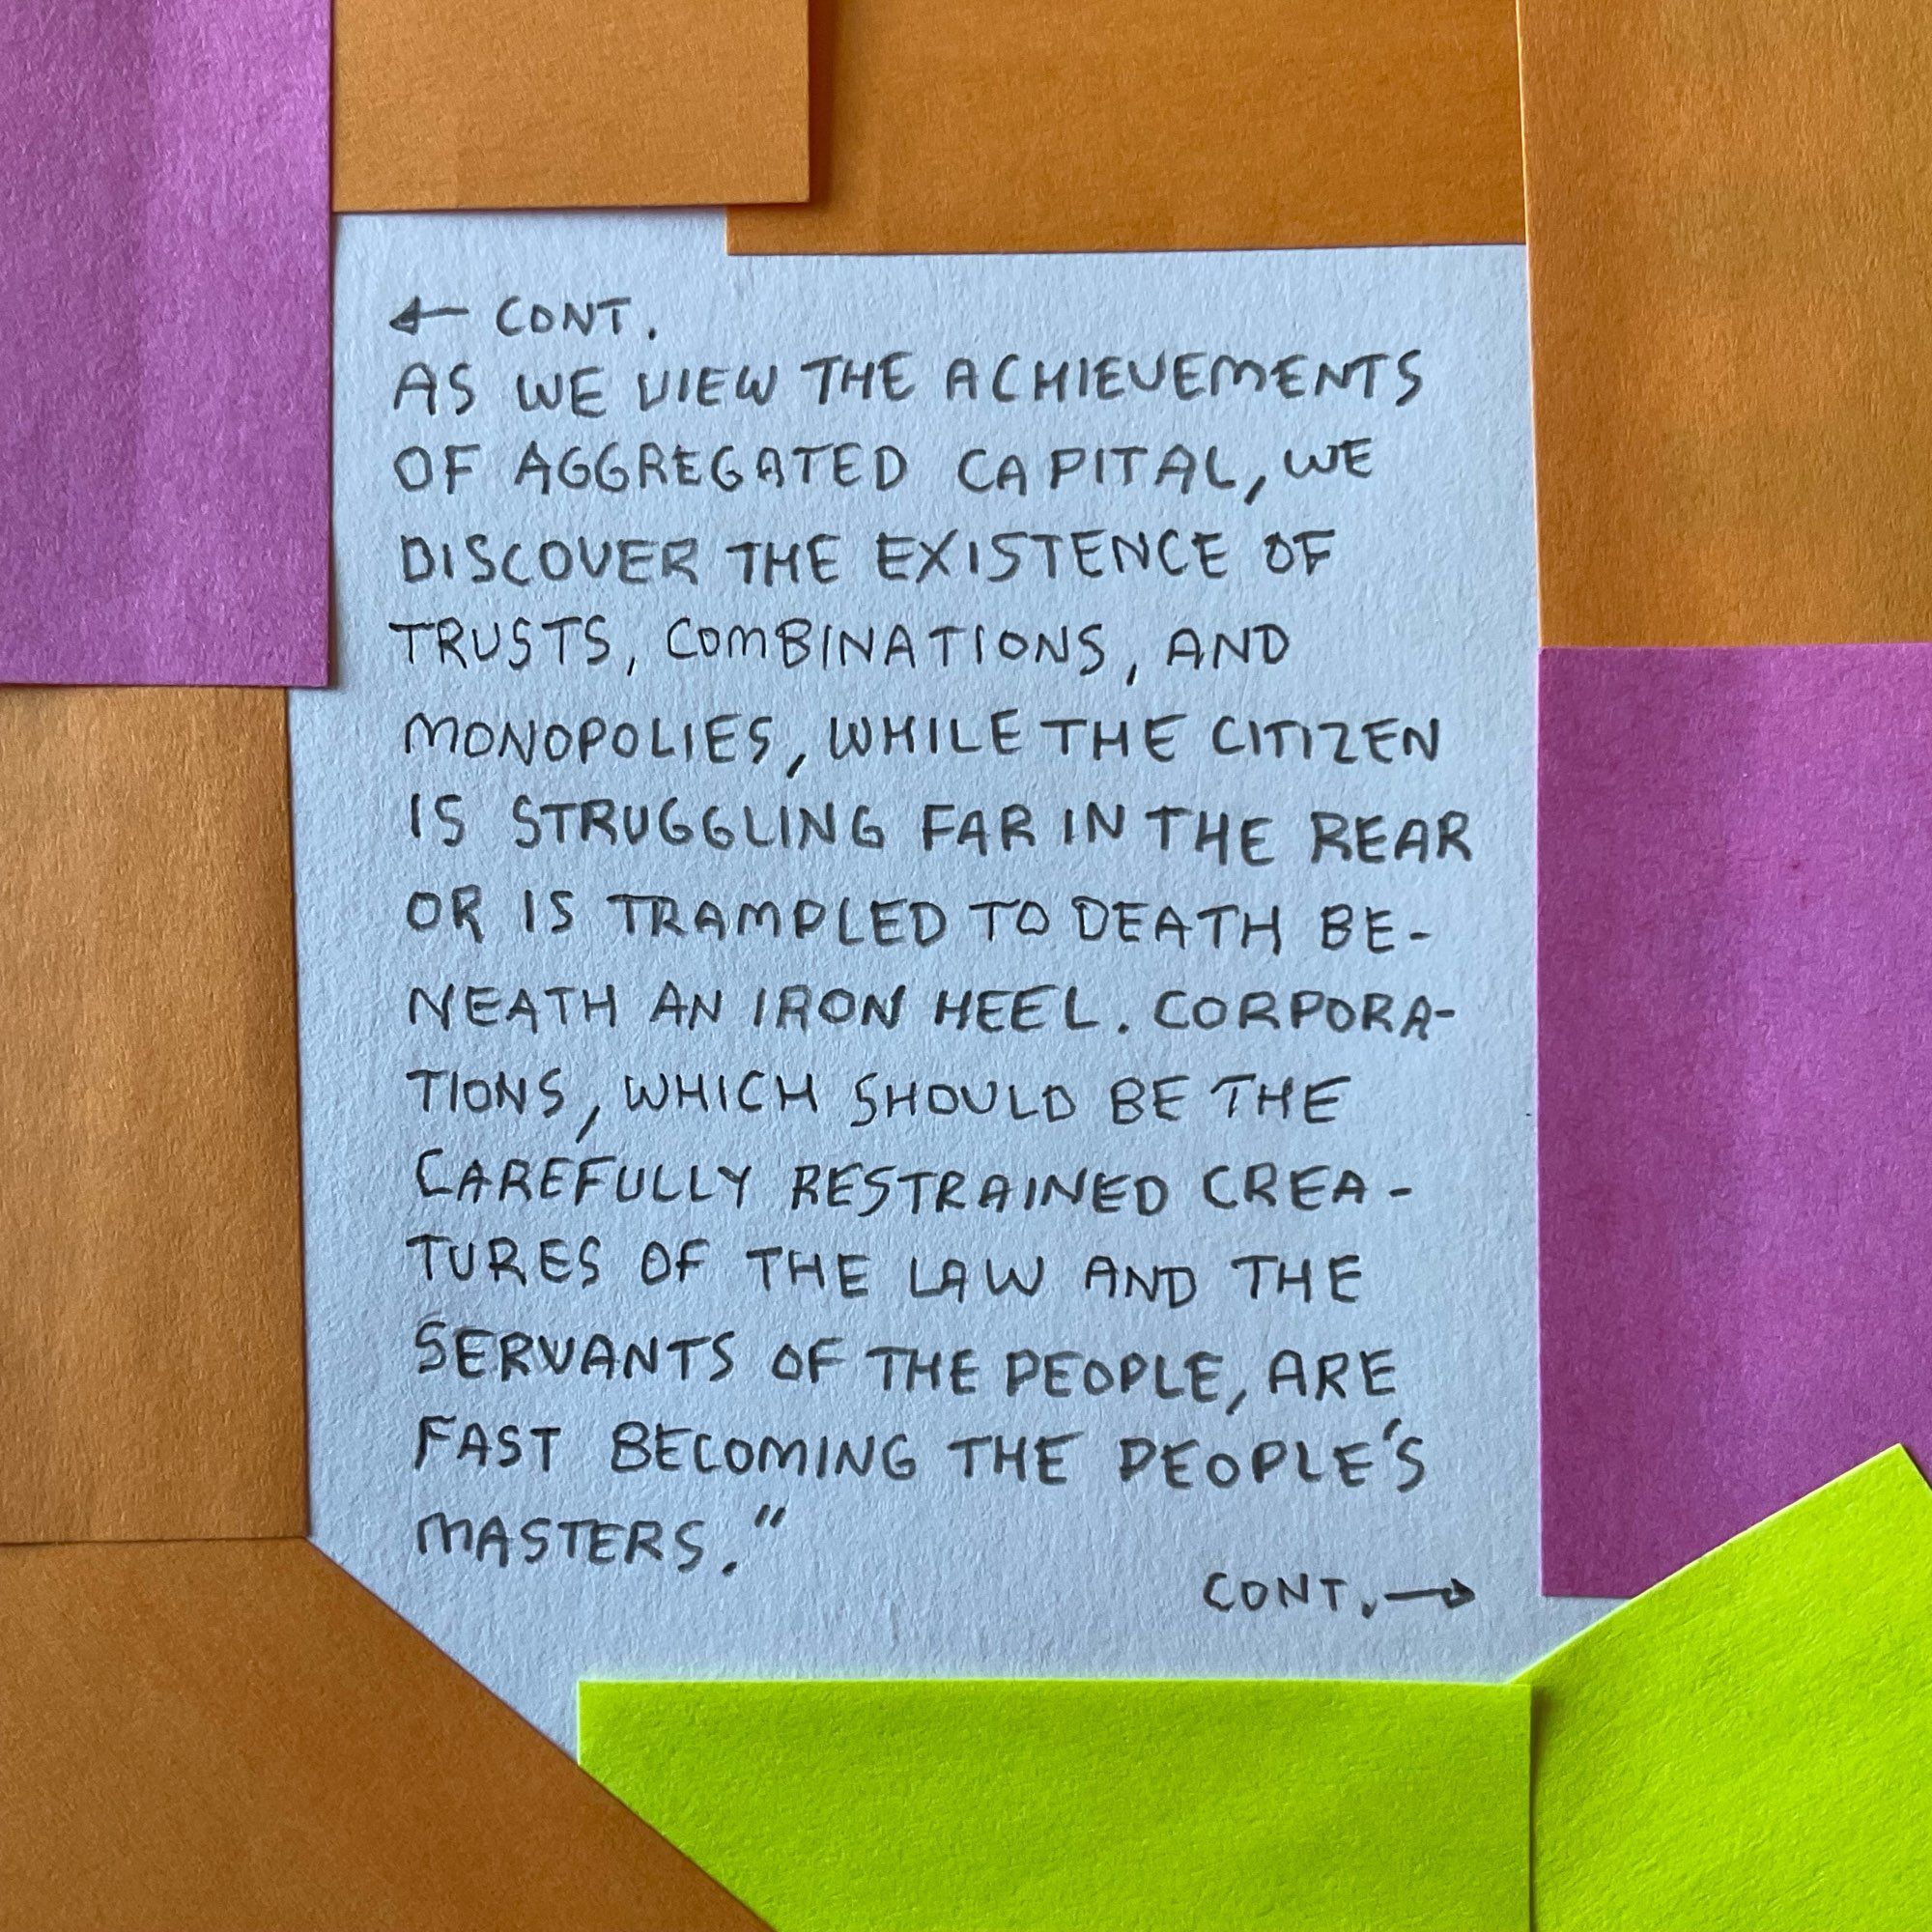 ← CONT.
AS WE VIEW THE ACHIEVEMENTS
OF AGGREGATED CAPITAL, WE
DISCOVER THE EXISTENCE OF
TRUSTS, COMBINATIONS, AND
MONOPOLIES, WHILE THE CITIZEN
IS STRUGGLING FAR IN THE REAR
OR IS TRAMPLED TO DEATH BE-
NEATH AN IRON HEEL. CORPORA-
TIONS, WHICH SHOULD BE THE
CAREFULLY RESTRAINED CREA-
TURES OF THE LAW AND THE
SERVANTS OF THE PEOPLE, ARE
FAST BECOMING THE PEOPLE'S
MASTERS."
CONT. →